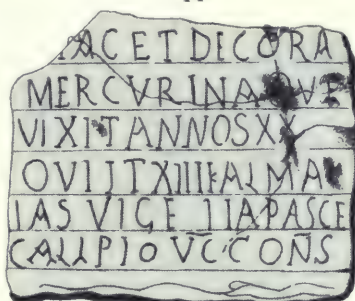 IACET DECORA
MERCVRINA QVE
VIXIT ANNOS
OVIIT XIIII KAL MA
IAS PASCE
CALLPIO VC CONS